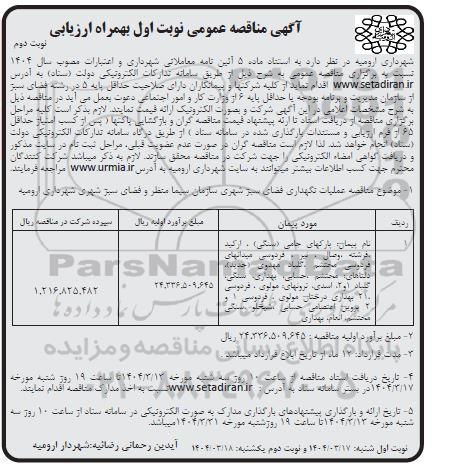 آگهی مناقصه عمومی نوبت اول بهمراه ارزیابی
نوبت دوم
شهرداری ارومیه در نظر دارد به استناد ماده ۵ آئین نامه معاملاتی شهرداری و اعتبارات مصوب سال ۱۴۰۴
نسبت به برگزاری مناقصه عمومی به شرح ذیل از طریق سامانه تدارکات الکترونیکی دولت (ستاد) به آدرس
www.setadiran.ir اقدام نماید از کلیه شرکتها و پیمانکاران دارای صلاحیت حداقل پایه ۵ در رشته فضای سبز
از سازمان مدیریت و برنامه بودجه یا حداقل پایه ۶ از وزارت کار و امور اجتماعی دعوت بعمل می آید در مناقصه ذیل
به شرح مشخصات اعلامی در این آگهی شرکت و بصورت الکترونیک ارائه قیمت نمایند. لازم بذکر است کلیه مراحل
برگزاری مناقصه از دریافت اسناد تا ارائه پیشنهاد قیمت مناقصه گران و بازگشایی پاکتها ( پس از کسب امتیاز حداقل
۶۵ از فرم ارزیابی و مستندات بارگذاری شده در سامانه ستاد ) از طریق درگاه سامانه تدارکات الکترونیکی دولت
(ستاد) انجام خواهد شد. لذا لازم است مناقصه گران در صورت عدم عضویت قبلی، مراحل ثبت نام در سایت مذکور
و دریافت گواهی امضاء الکترونیکی را جهت شرکت در مناقصه محقق سازند. لازم به ذکر میباشد شرکت کنندگان
محترم جهت کسب اطلاعات بیشتر میتوانند به سایت شهرداری ارومیه به آدرس www.urmia.ir مراجعه فرمایند.
۱- موضوع مناقصه عملیات نگهداری فضای سبز شهری سازمان سیما منظر و فضای سبز شهری شهرداری ارومیه
ردیف مورد پیمان مبلغ برآورد اولیه ریال سپرده شرکت در مناقصه ریال
۱ نام پیمان: پارکهای جامی (سنگی) ، ارکید
۲۴،۳۳۶،۵۰۹،۶۴۵ ۱،۲۱۶،۸۲۵،۴۸۲
۲- مبلغ برآورد اولیه مناقصه : ۲۴،۳۳۶،۵۰۹،۶۴۵ ریال
۳- مدت قرارداد: ۱۲ ماه از تاریخ ابلاغ قرارداد میباشد .
۴- تاریخ دریافت اسناد مناقصه از ساعت ۱۰ روز سه شنبه مورخه ۱۴۰۴/۳/۱۳ تا ساعت ۱۹ روز شنبه مورخه
۱۴۰۴/۳/۱۷ در بستر سامانه ستاد به آدرس : www.setadiran.ir نسبت به اخذ مدارک مناقصه اقدام نمایند.
۵- تاریخ ارائه و بارگذاری پیشنهادهای بارگذاری مدارک به صورت الکترونیکی در سامانه ستاد از ساعت ۱۰ روز سه
شنبه مورخه ۱۴۰۴/۳/۱۳ تا ساعت ۱۹ روزشنبه مورخه ۱۴۰۴/۳/۳۱ میباشد.
نوبت اول شنبه: ۱۴۰۴/۰۳/۱۷ و نوبت دوم یکشنبه: ۱۴۰۴/۰۳/۱۸ آیدین رحمانی رضائیه:شهردار ارومیه